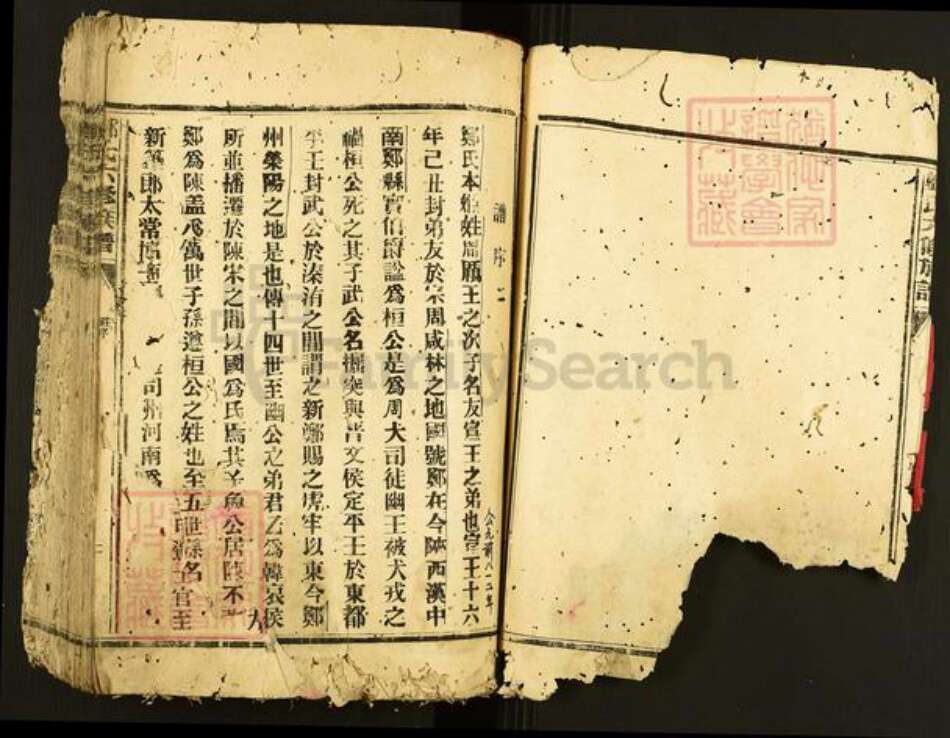 氏六修族譜
譜序二
鄭氏本姬姓周厲王之次子名友宣王之弟也宣王十六
公元前八一二年
年己丑封弟友於宗周咸林之地國號鄭在今陝西漢中
南鄭縣賨伯爵諡為桓公是為周大司徒幽王被犬戎之
禍桓公死之其子武公名掘突與晉文侯定平王於東都
平王封武公於溱洧之間謂之新鄭賜之虎牢以東今鄭
州滎陽之地是也傳十四世至幽公之弟君乙為韓哀侯
所並播遷於陳宋之間以國為氏焉其 魯公居陳不
鄭為陳蓋八萬世子孫遵桓公之姓也至五世孫名 官至
新 郎太常博 司州河南為
氏六修族譜
FamilySearch